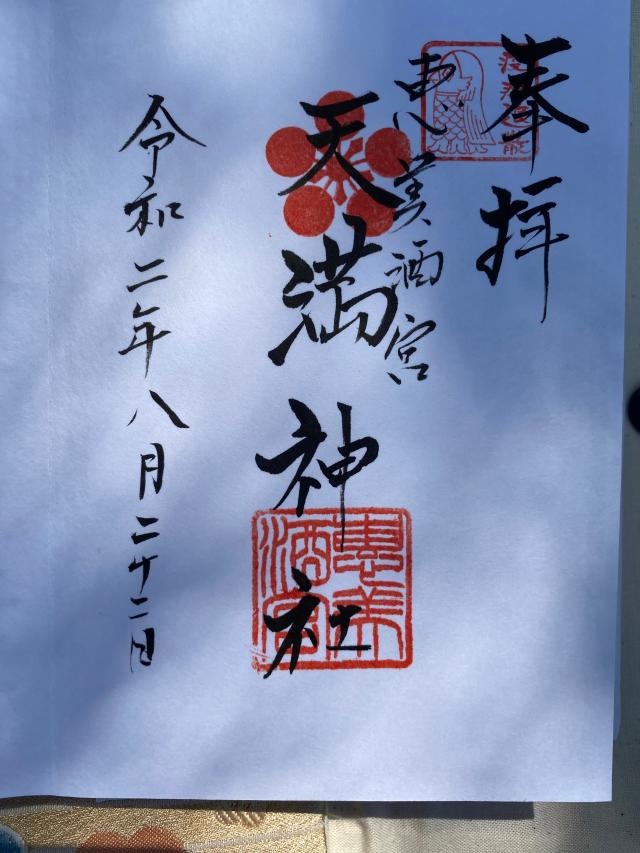 奉拝
疫病退散
恵美酒宮
天満神社
惠美
酒宮
令和二年八月二十二日